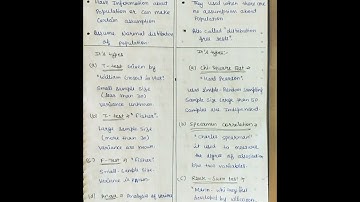 Have Information about
Population or Can make
Certain assumption
Assume Normal distribution
of population
It's types
(a) T-test given by
"William Gosset in 1908"
Small Sample Size
(less than 30)
Variance unknown
(b) Z-test "Fisher".
Large Sample Size
(more than 30)
Variance are known
(c) F-test "Fisher"
Small Sample Size
Variance is
(d) Analysis of
They used when there are
no assumptions about
Population
Also called "distribution
free tests".
It's types:-
(a) Chi-Square test
"Karl Pearson".
Used Simple Random Sampling
Sample Size larger than 50
Samples are Independent
(b) Spearman Correlation
"Charles Spearman"
it used to measure
the degree of association
b/w two variables.
(c) Rank-Sum test
"Mann-Whitney
by Wilcoxon